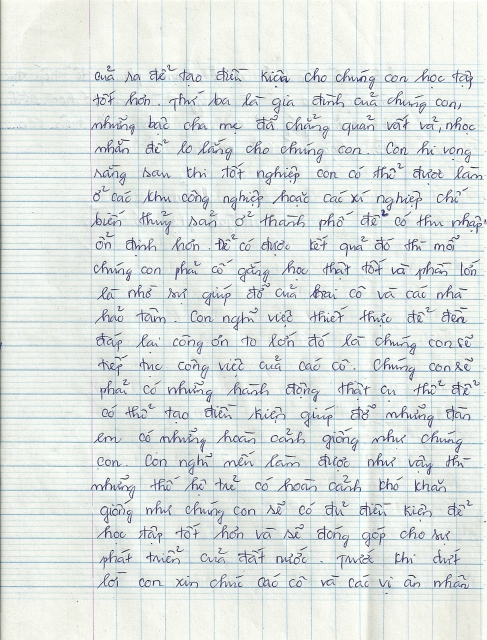 của ra để tạo điều kiện cho chúng con học tập
tốt hơn. Thứ ba là gia đình của chúng con,
những bậc cha mẹ đã chẳng quản vất vả, nhọc
nhằn để lo lắng cho chúng con. Con hi vọng
rằng sau khi tốt nghiệp con có thể được làm
ở các khu công nghiệp hoặc các xí nghiệp chế
biến thủy sản ở thành phố để có thu nhập
ổn định hơn. Để có được kết quả đó thì mỗi
chúng con phải cố gắng học thật tốt và phần lớn
là nhờ sự giúp đỡ của hai cô và các nhà
hảo tâm. Con nghĩ việc thiết thực để đền
đáp lại công ơn to lớn đó là chúng con sẽ
tiếp tục công việc của các cô. Chúng con sẽ
phải có những hành động thật cụ thể để
có thể tạo điều kiện giúp đỡ những đàn
em có những hoàn cảnh giống như chúng
con. Con nghĩ nếu làm được như vậy thì
những thế hệ trẻ có hoàn cảnh khó khăn
giống như chúng con sẽ có đủ điều kiện để
học tập tốt hơn và sẽ đóng góp cho sự
phát triển của đất nước. Trước khi dứt
lời con xin chúc các cô và các vị ân nhân